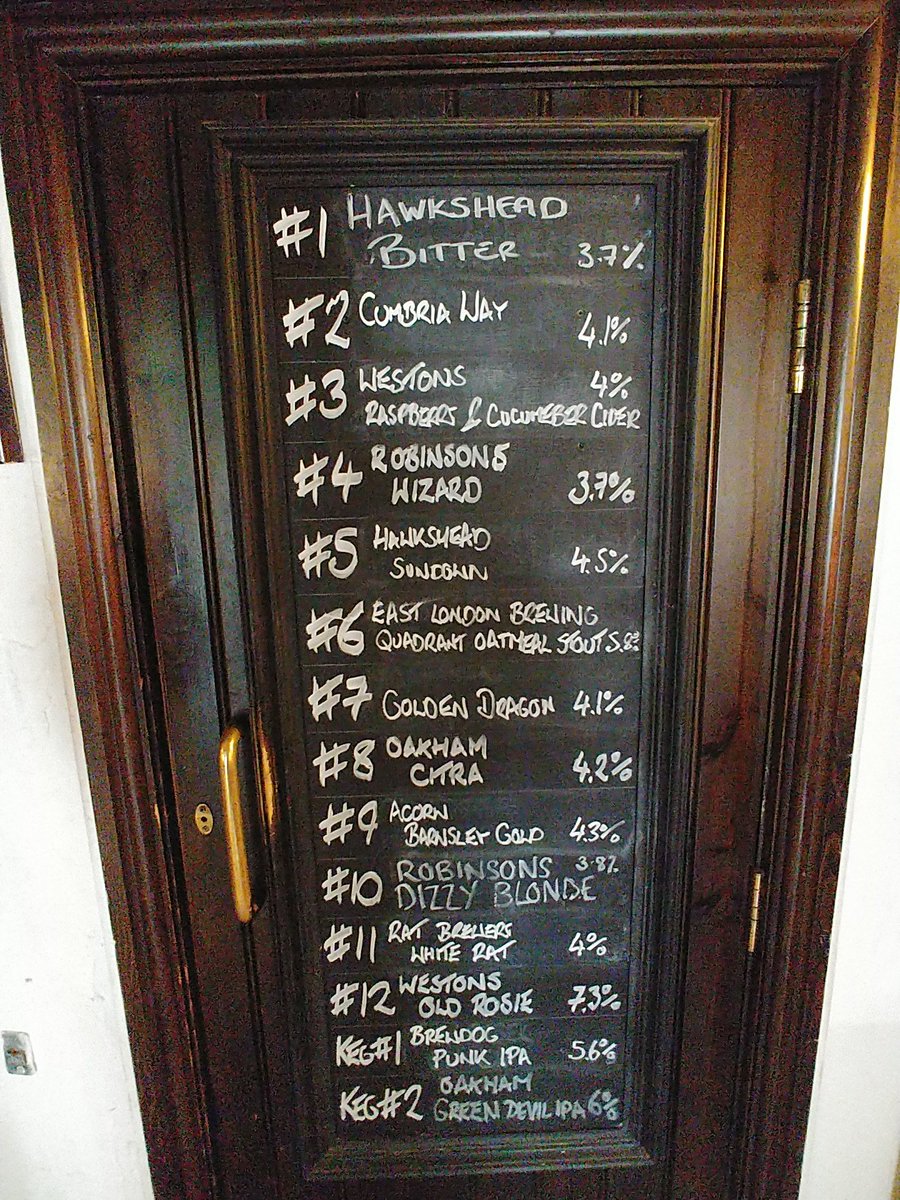 #1 HAWKSHEAD
BITTER 3.7%
#2 CUMBRIA WAY
4.1%
#3 WESTONS 4%
RASPBERRS & CUCUMEBER CIDER
#4 ROBINSONS
WIZARD 3.7%
#5 HAWKSHEAD
SUNDOWN 4.5%
#6 EAST LONDON BREWING
QUADRANT OATMEAL STOUT 5.8%
#7 GOLDEN DRAGON 4.1%
#8 OAKHAM
CITRA 4.2%
#9 ACORN
BARNSLEY GOLD 4.3%
#10 ROBINSONS 3.8%
DIZZY BLONDE
#11 RAT BREWERS
WHITE RAT 4%
#12 WESTONS
OLD ROSIE 7.3%
KEG#1 BREWDOG
PUNK IPA 5.6%
KEG#2 OAKHAM
GREEN DEVIL IPA 6%